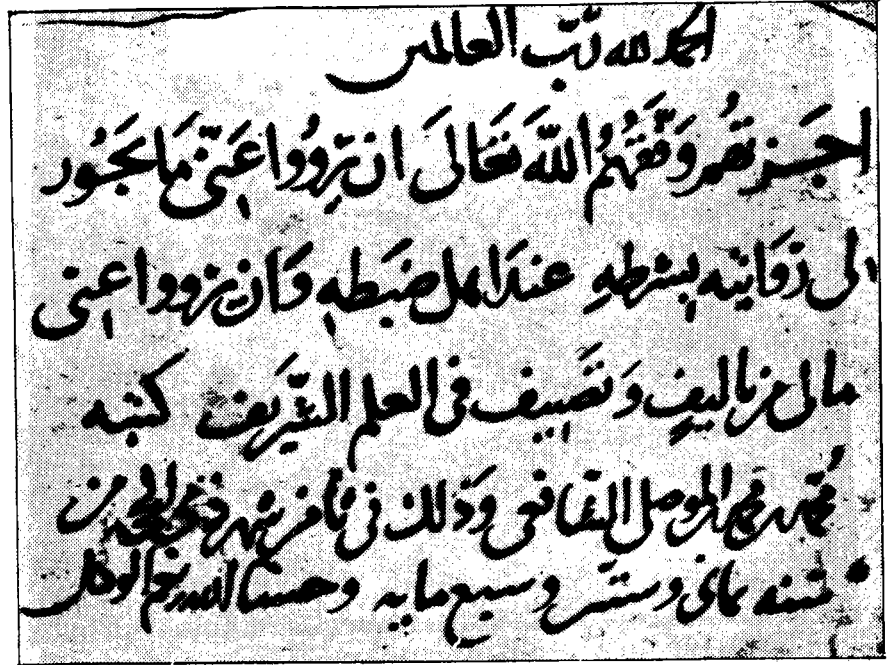 الحمد لله رب العالمين
اجزتهم وفقهم الله تعالى ان يرووا عني ما يجوز
لي روايته بشرطه عند اهل ضبطه وان يرووا عني
مالي من تاليف وتصنيف في العلم الشريف كتبه
محمد بن محمد الموصلي الشافعي وذلك في ثامن شهر ذي الحجة من
سنة ثماني وستين وسبع مايه وحسبنا الله ونعم الوكيل